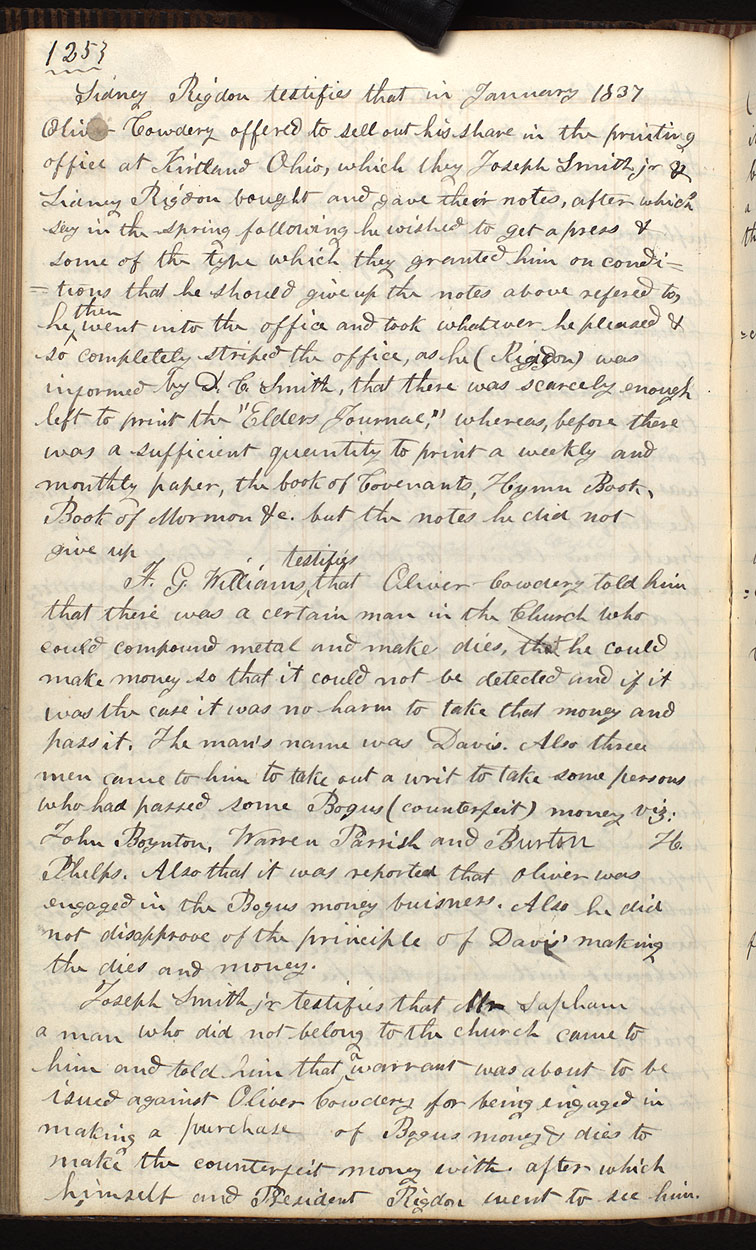 125}
Sidney Rigdon testifies that in January 1837
Oliver Cowdery offered to sell out his share in the printing
office at Kirtland Ohio, which they Joseph Smith jr &
Sidney Rigdon bought and gave their notes, after which
say in the spring following he wished to get a press &
some of the type which they granted him on condi=
=tions that he should give up the notes above refered to,
then
he, went into the office and took whatever he pleased &
so completely striped the office, as he (Rigdon) was
informed by D. C. Smith, that there was scarcely enough
left to print the "Elders Journal," whereas, before there
was a sufficient quantity to print a weekly and
monthly paper, the book of Covenants, Hymn Book,
Book of Mormon &c. but the notes he did not
give up
testifies
F. G. Williams, that Oliver Cowdery told him
that there was a certain man in the Church who
could compound metal and make dies, that he could
make money so that it could not be detected and if it
was the case it was no harm to take that money and
pass it. The man's name was Davis. Also three
men came to him to take out a writ to take some persons
who had passed some Bogus (counterfeit) money viz:
John Boynton, Warren Parrish and Burton H.
Phelps. Also that it was reported that Oliver was
engaged in the Bogus money buisness. Also he did
not disapprove of the principle of Davis' making
the dies and money.
Joseph Smith jr testifies that Mr Sapham
a man who did not belong to the church came to
him and told him that a warrant was about to be
issued against Oliver Cowdery for being engaged in
making a purchase of Bogus money & dies to
make the counterfeit money with. after which
himself and President Rigdon went to see him.